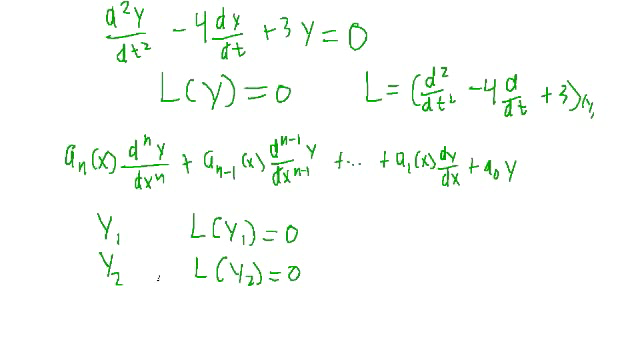 d²y/dt² - 4 dy/dt + 3y = 0
L(y) = 0 L = (d²/dt² - 4 d/dt + 3)(y)
aₙ(x) dⁿy/dxⁿ + aₙ₋₁(x) dⁿ⁻¹y/dxⁿ⁻¹ + ... + a₁(x) dy/dx + a₀ y
y₁ L(y₁) = 0
y₂ L(y₂) = 0